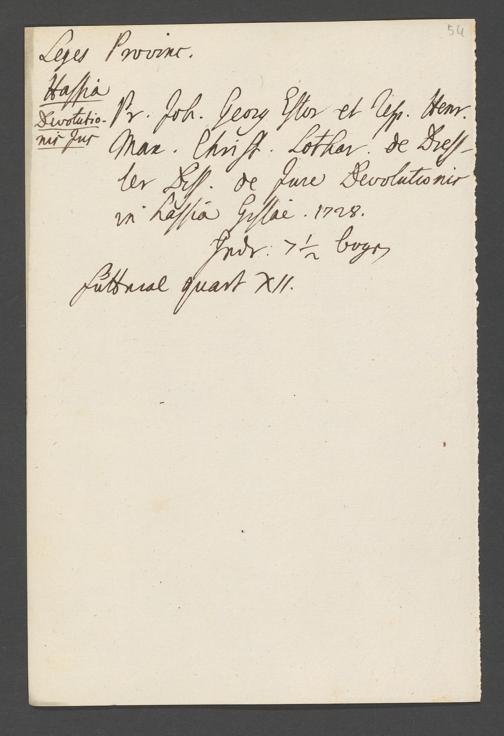 54
Leges Provinc.
Hassia
Devolutio-
nis Jus
Pr. Joh. Georg Estor et Resp. Henr.
Max. Christ. Lothar. de Dress-
ler Diss. de Jure Devolutionis
in Hassia Gissae. 1728.
7 1/2 boge
quart XII.